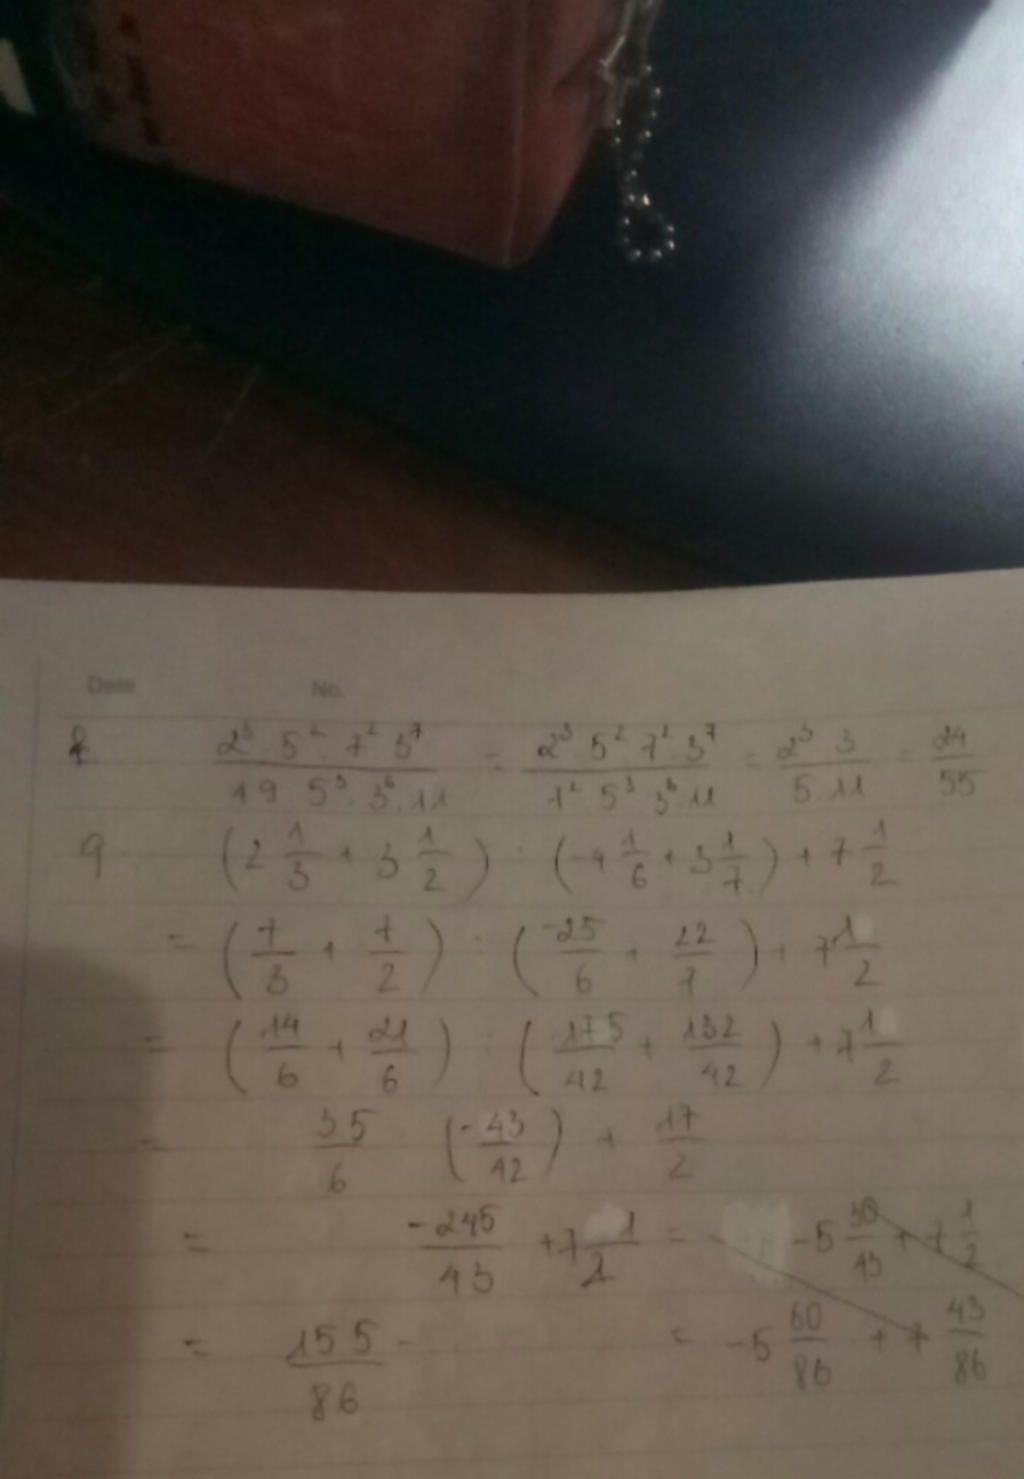 Date No.
8 2³ · 5² · 7² 3⁷ / 49 5³ · 3⁶ · 11 = 2³ · 5² 7² · 3⁷ / 7² 5³ 3⁶ · 11 = 2³ 3 / 5 · 11 = 24/55
9 (2 1/3 + 3 1/2) : (-4 1/6 + 3 1/7) + 7 1/2
= (7/3 + 7/2) : (-25/6 + 22/7) + 7 1/2
= (14/6 + 21/6) : (-175/42 + 132/42) + 7 1/2
= 35/6 (-43/42) + 17/2
= -245/43 + 7 1/2 = -5 30/43 + 7 1/2
= 155/86 = -5 60/86 + 7 43/86